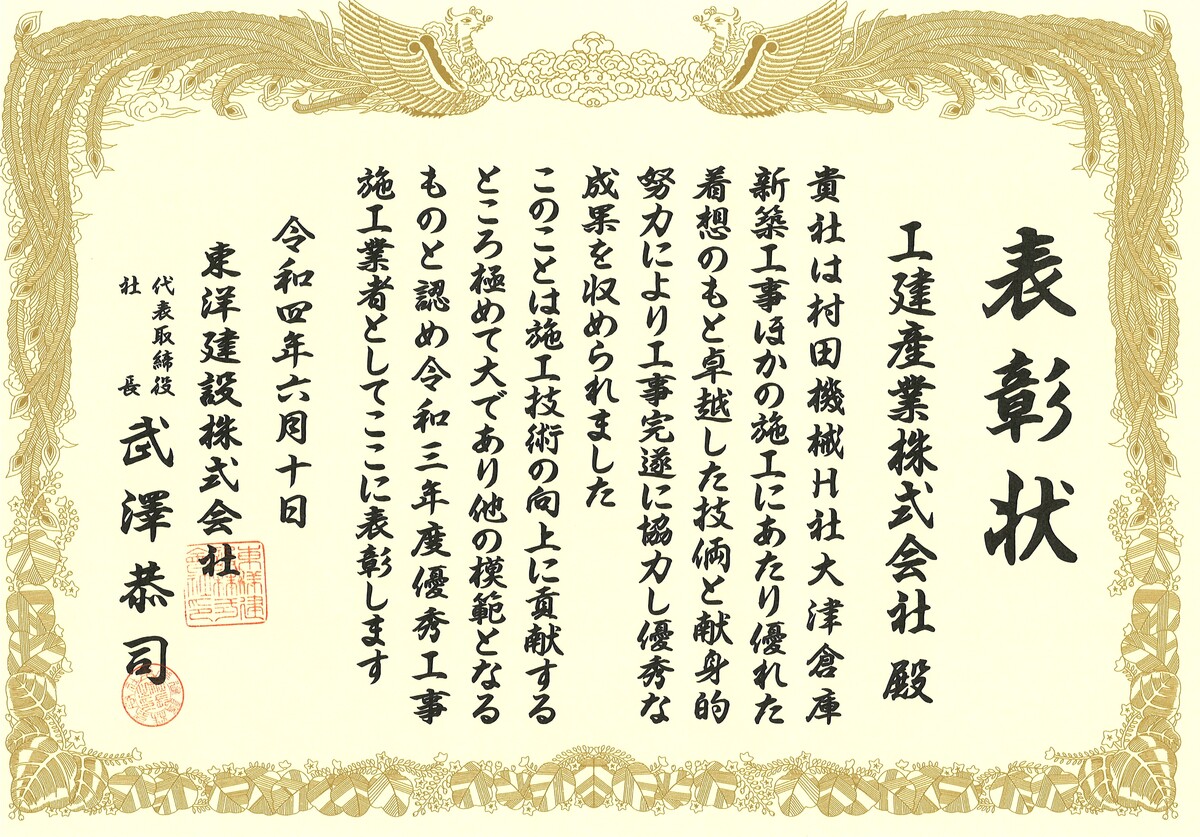 表彰状
工建産業株式会社 殿
貴社は村田機械H社大津倉庫
新築工事ほかの施工にあたり優れた
着想のもと卓越した技倆と献身的
努力により工事完遂に協力し優秀な
成果を収められました
このことは施工技術の向上に貢献する
ところ極めて大であり他の模範となる
ものと認め令和三年度優秀工事
施工業者としてここに表彰します
令和四年六月十日
東洋建設株式会社
代表取締役
社長
武澤恭司